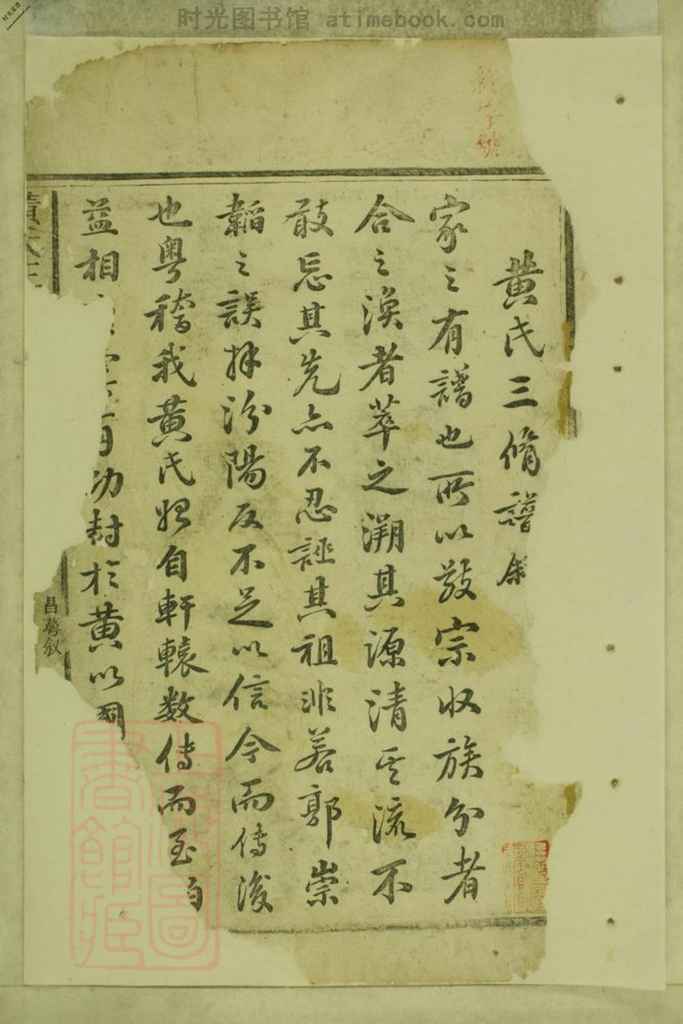 时光图书馆 atimebook.com
黄氏三脩譜叙
家之有譜也所以敬宗收族分者
合之渙者萃之溯其源清其流不
敢忘其先亦不忍誣其祖非若郭崇
韜之誤拜汾陽反不足以信今而傳後
也粤稽我黄氏始自軒轅數傳而至伯
益相 有功封於黄以國
黄氏三
昌譽叙